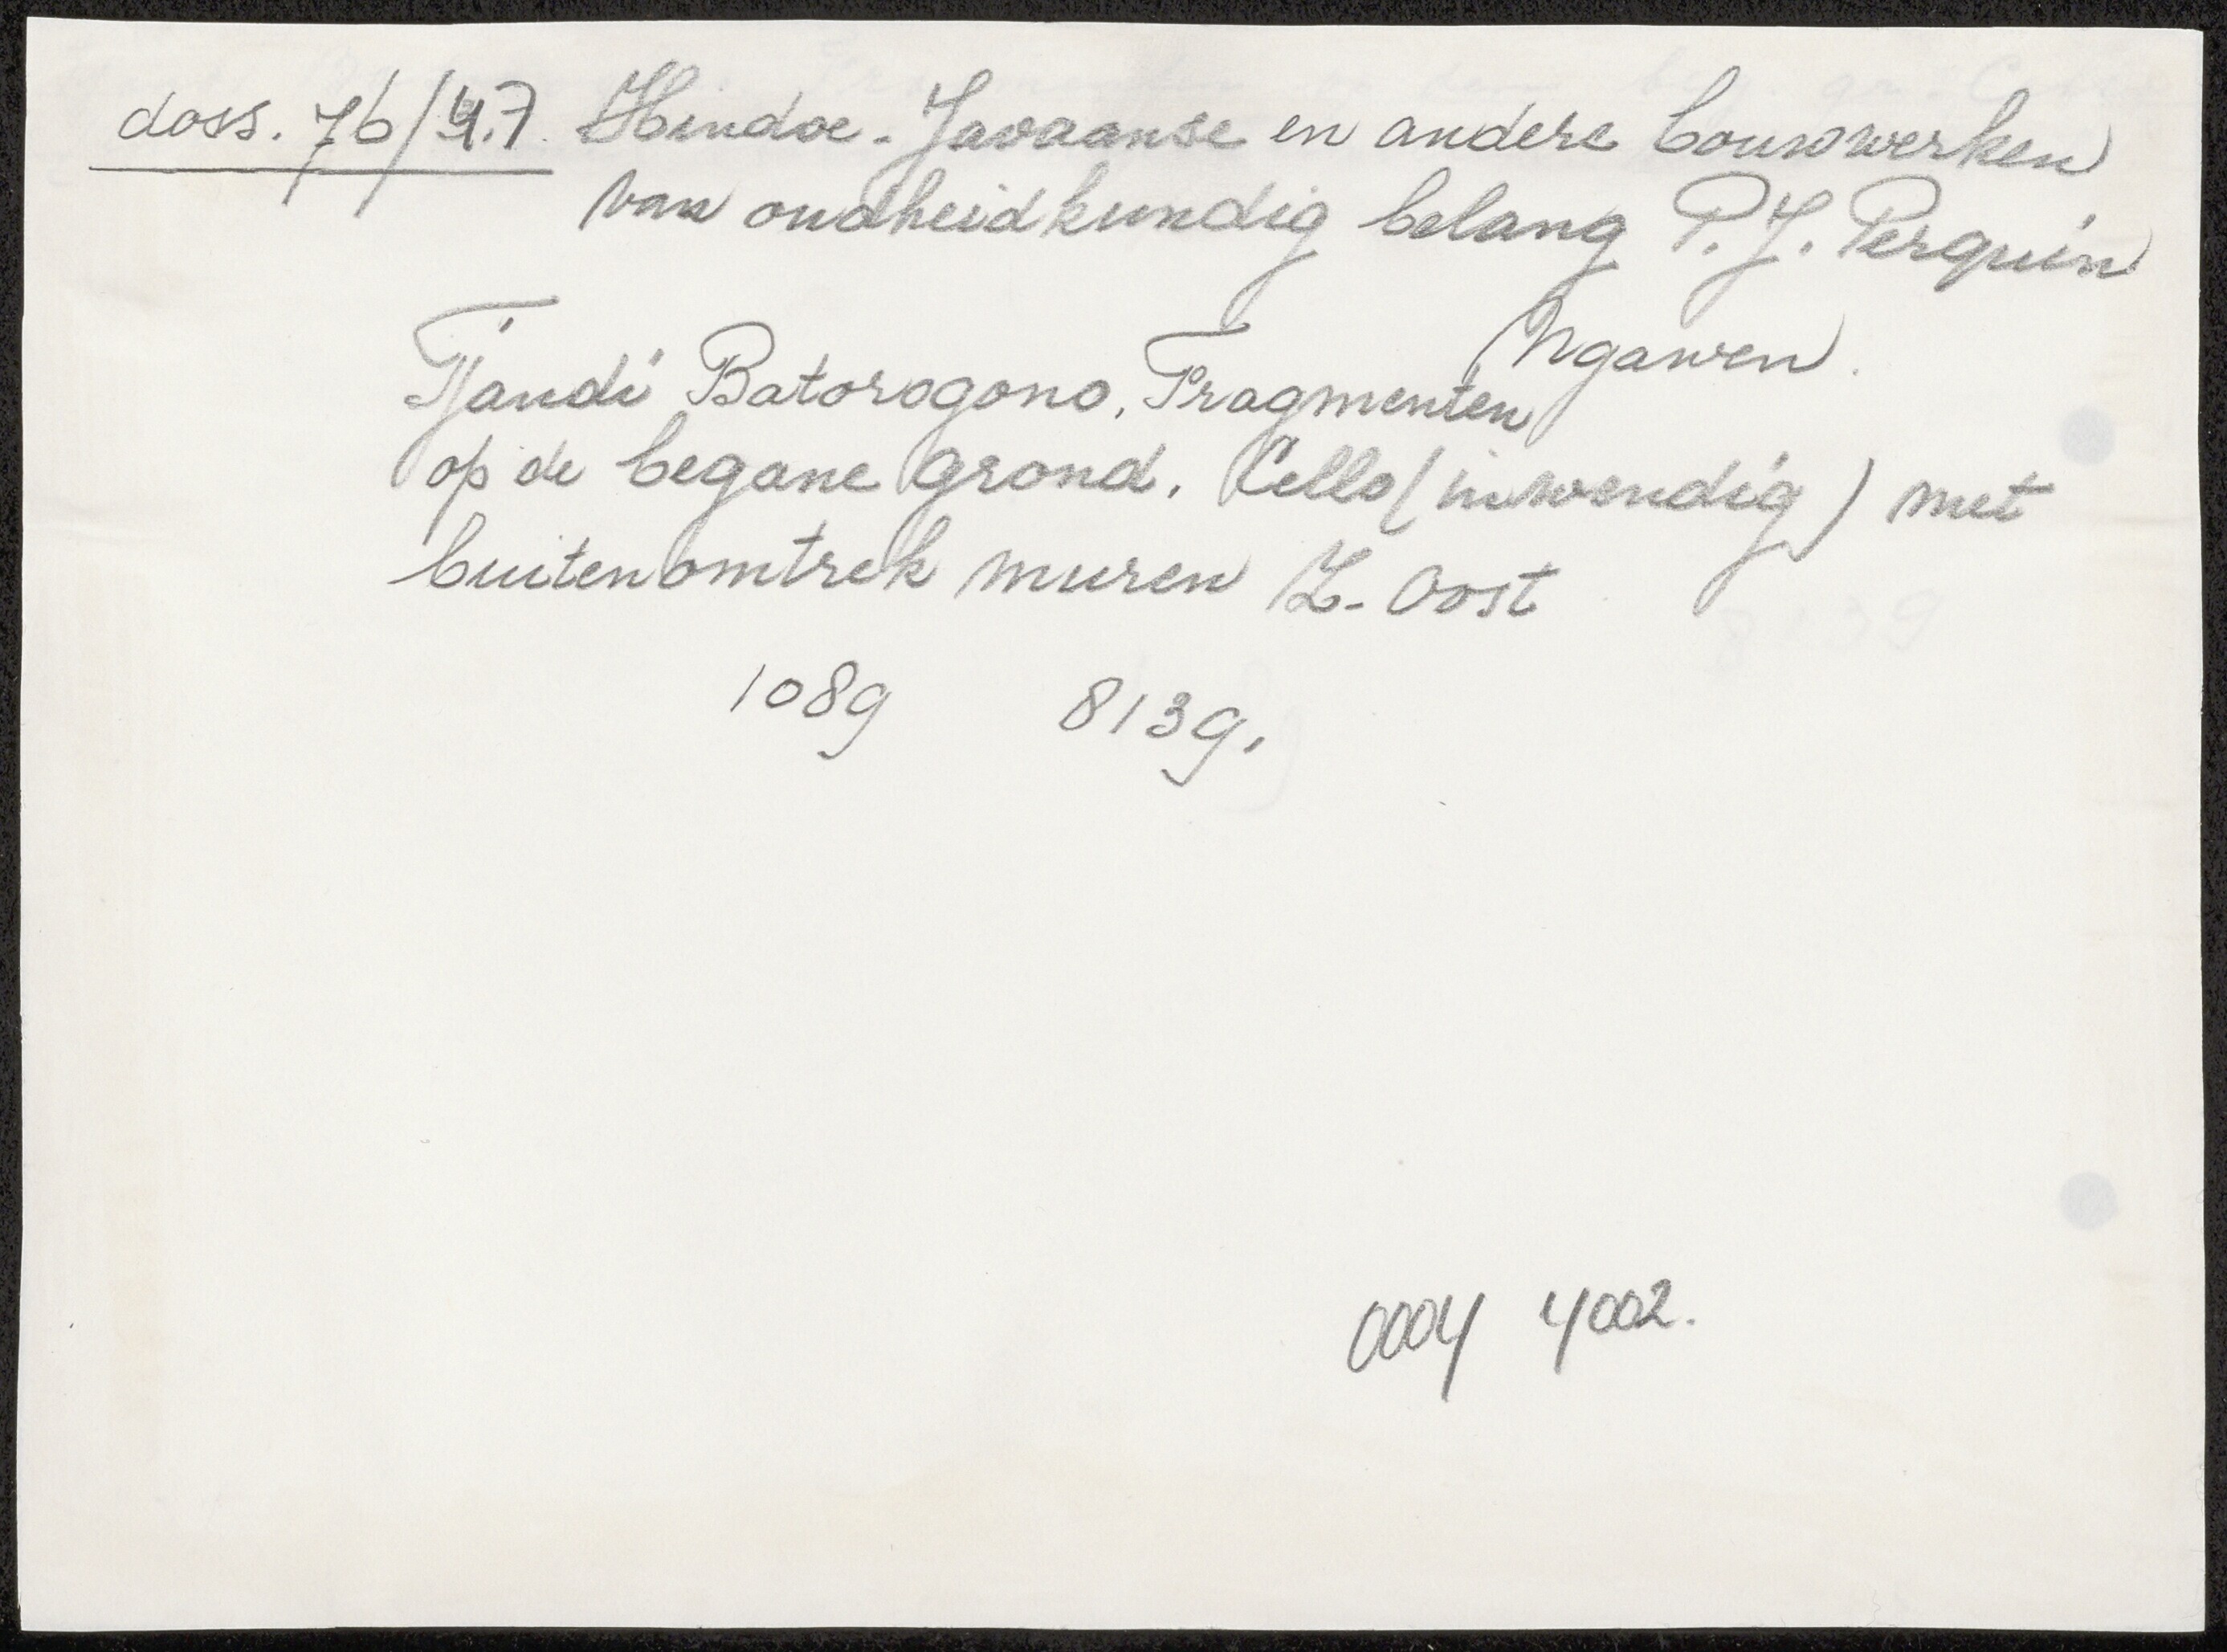 doss. 76/4.7. Hindoe-Javaanse en andere bouwwerken
van oudheidkundig belang P.J. Perquin
Ngawen.
Tjandi Batorogono, Fragmenten
op de begane grond. Cella (inwendig) met
buitenomtrek muren Z-Oost
1089 8139.
0004 4002.